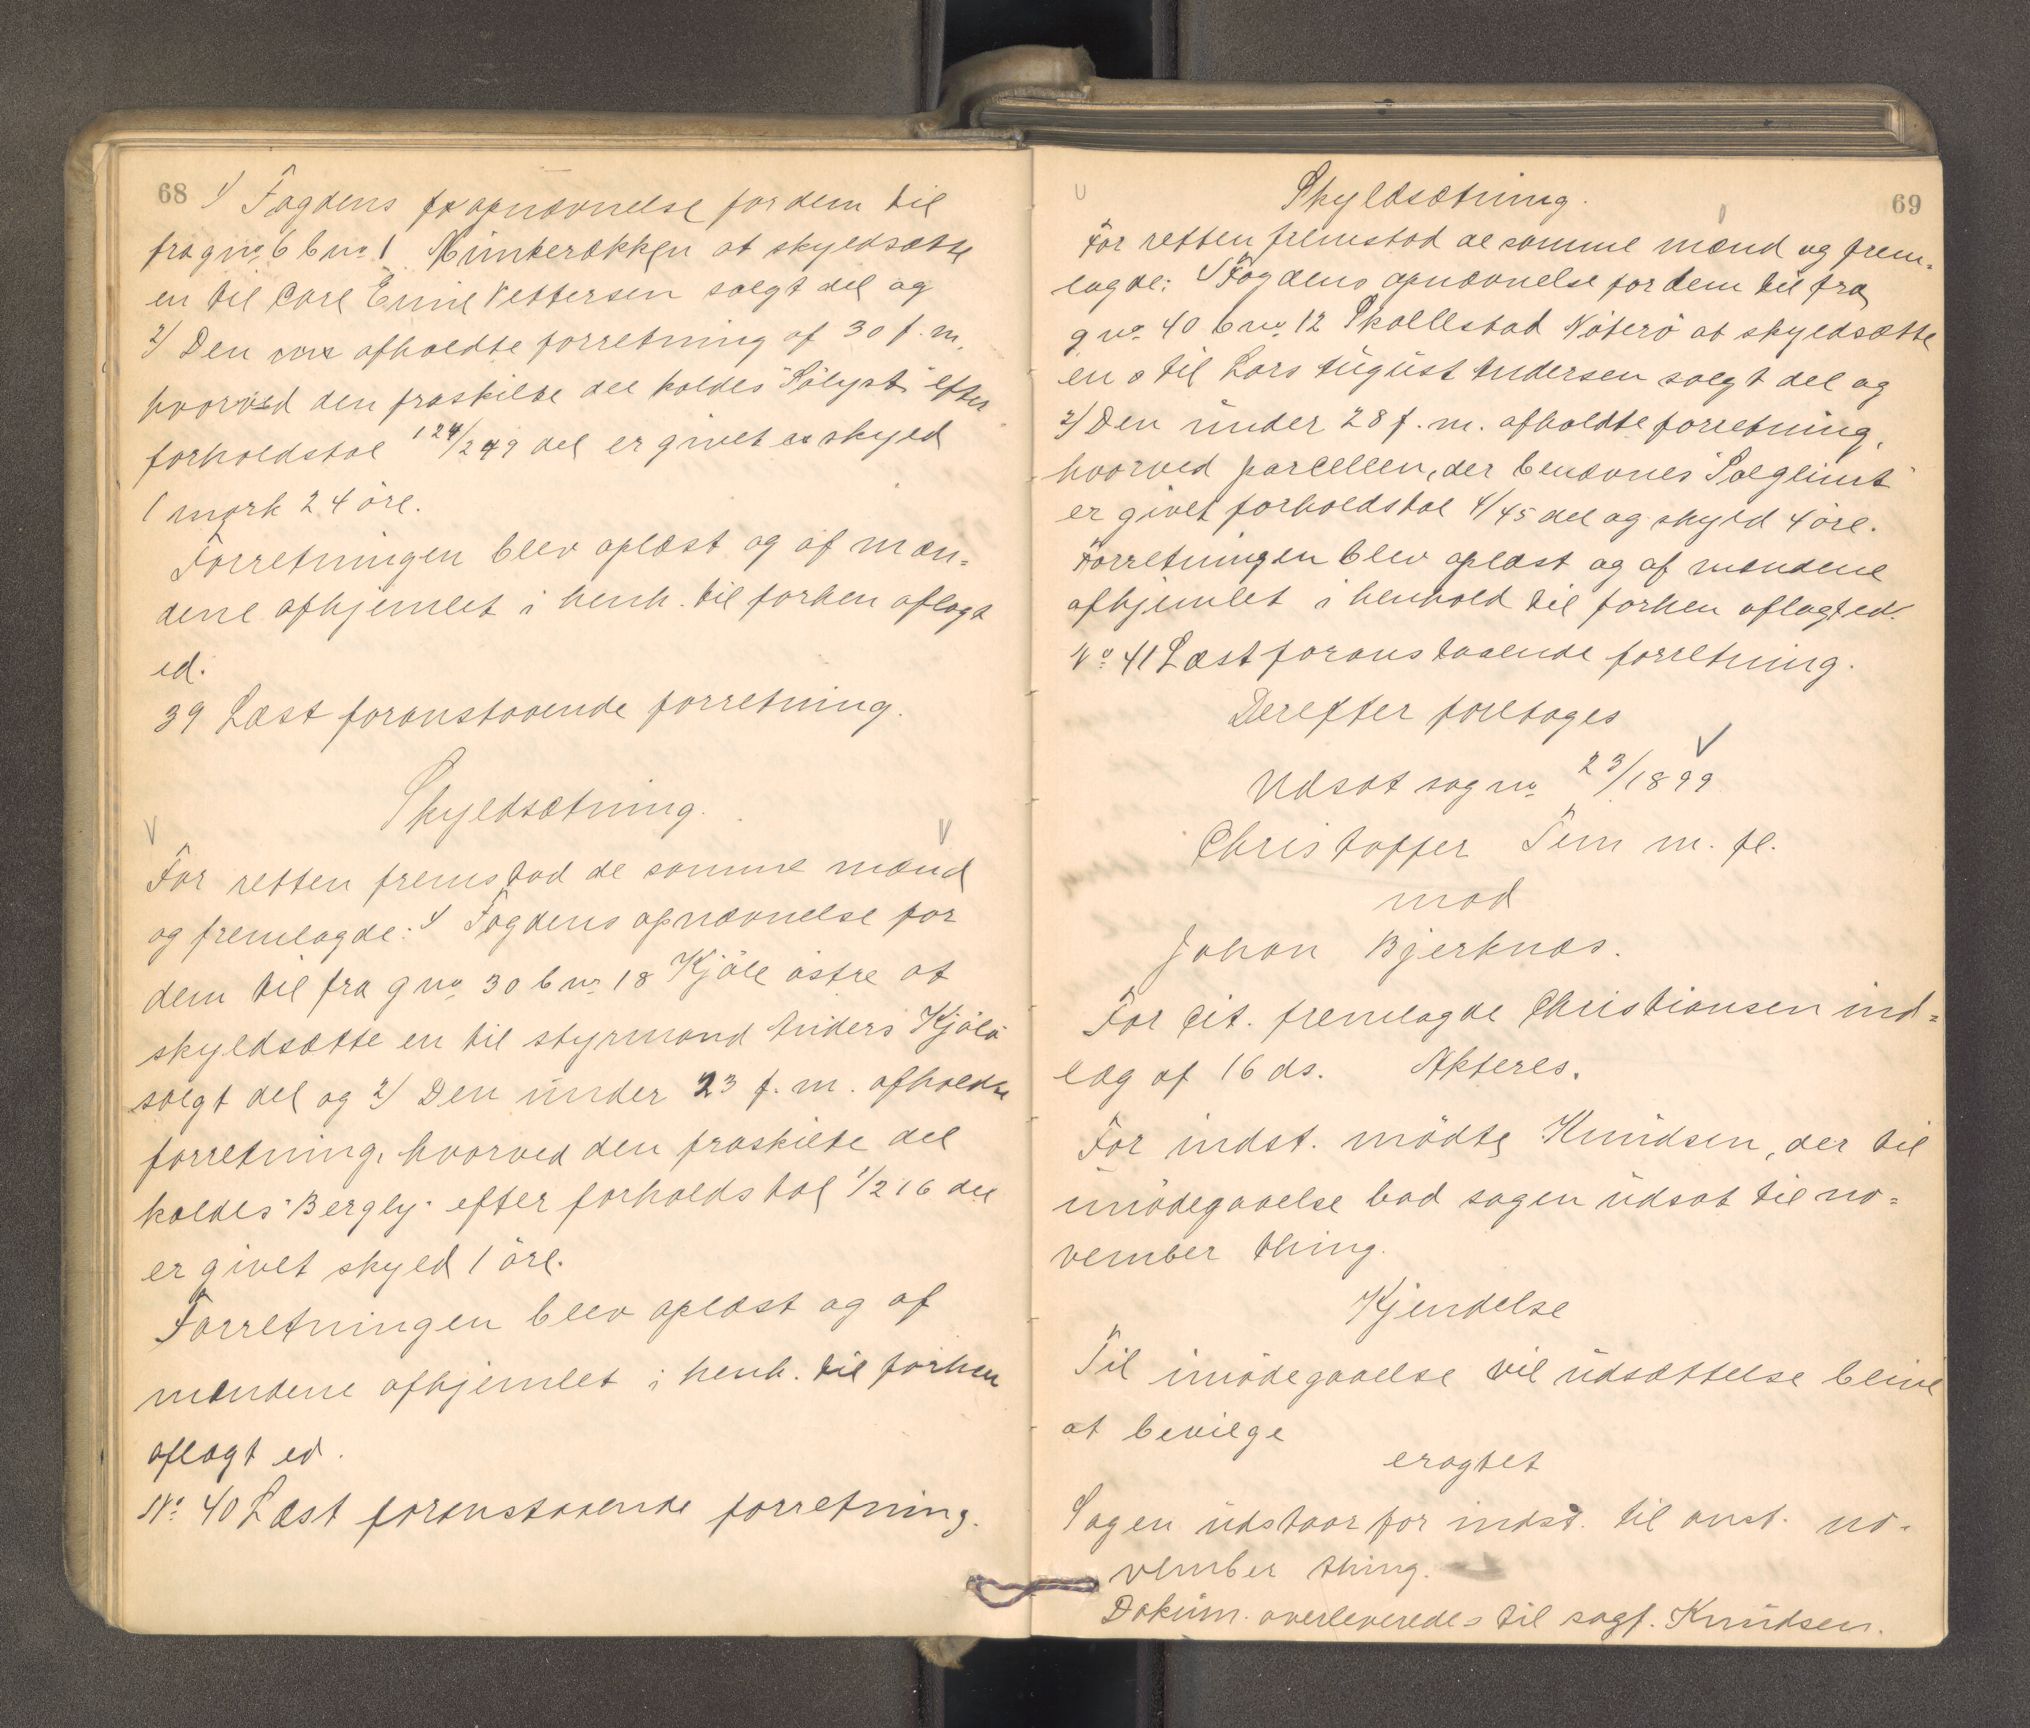 68
1/ Fogdens opnævnelse for dem til
fra gno 6 bno 1 Munkerækken at skyldsætte
en til Carl Emil Pettersen solgt del og
2/ Den afholdte forretning af 30 f. m.
hvorved den fraskilte del kaldes "Sölyst" efter
forholdstal 124/249 del er givet skyld
1 mark 24 öre.
Forretningen blev oplæst og af mæn-
dene afhjemlet i henh. til forhen aflagt
ed.
39 Læst foranstaaende forretning.
Skyldsætning.
For retten fremstod de samme mænd
og fremlagde: 1/ Fogdens opnævnelse for
dem til fra gno 30 bno 18 Kjöle östre at
skyldsætte en til styrmand Anders Kjölö
solgt del og 2/ Den under 23 f. m. afholdte
forretning, hvorved den fraskilte del
kaldes "Bergly" efter forholdstal 1/216 del
er givet skyld 1 öre.
Forretningen blev oplæst og af
mændene afhjemlet i henh. til forhen
aflagt ed.
No 40 Læst foranstaaende forretning.
69
Skyldsætning.
For retten fremstod de samme mænd og frem-
lagde: 1/ Fogdens opnævnelse for dem til fra
gno 40 bno 12 Skallestad Nöterö at skyldsætte
en til Lars August Andersen solgt del og
2/ Den under 28 f. m. afholdte forretning,
hvorved parcellen, der benævnes "Solglimt"
er givet forholdstal 4/45 del og skyld 4 öre.
Forretningen blev oplæst og af mændene
afhjemlet i henhold til forhen aflagt ed.
No 41 Læst foranstaaende forretning.
Derefter foretoges
Udsat sag no 23/1899
Christoffer Tem m. fl.
mod
Johan Bjerknæs.
For cit. fremlagde Christiansen ind-
læg af 16 ds. Akteres.
For indst. mödte Knudsen, der til
imödegaaelse bad sagen udsat til no-
vember thing.
Kjendelse
Til imödegaaelse vil udsættelse blive
at bevilge
eragtet
Sagen udstaar for indst. til anst. no-
vember thing.
Dokum. overleveredes til sagf. Knudsen.